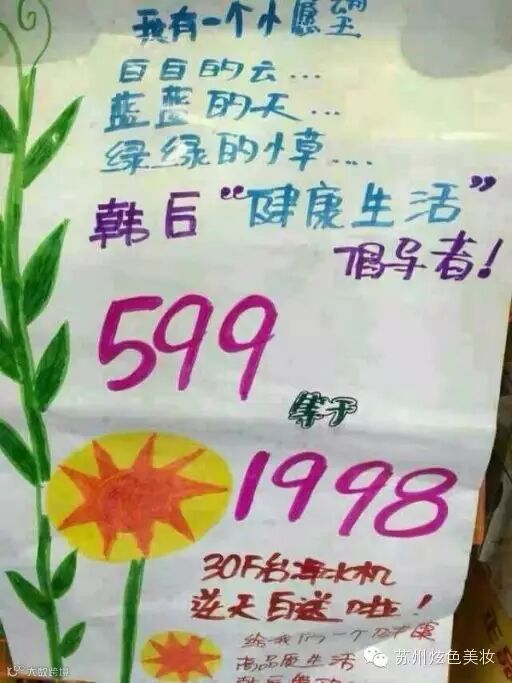 我有一个小愿望
白白的云...
蓝蓝的天...
绿绿的小草....
韩后“健康生活”
倡导者!
599
等于
1998
30万台净水机
逆天白送啦!
给我们一个
高品质生活
韩后
苏州炫色美妆
大数跨境